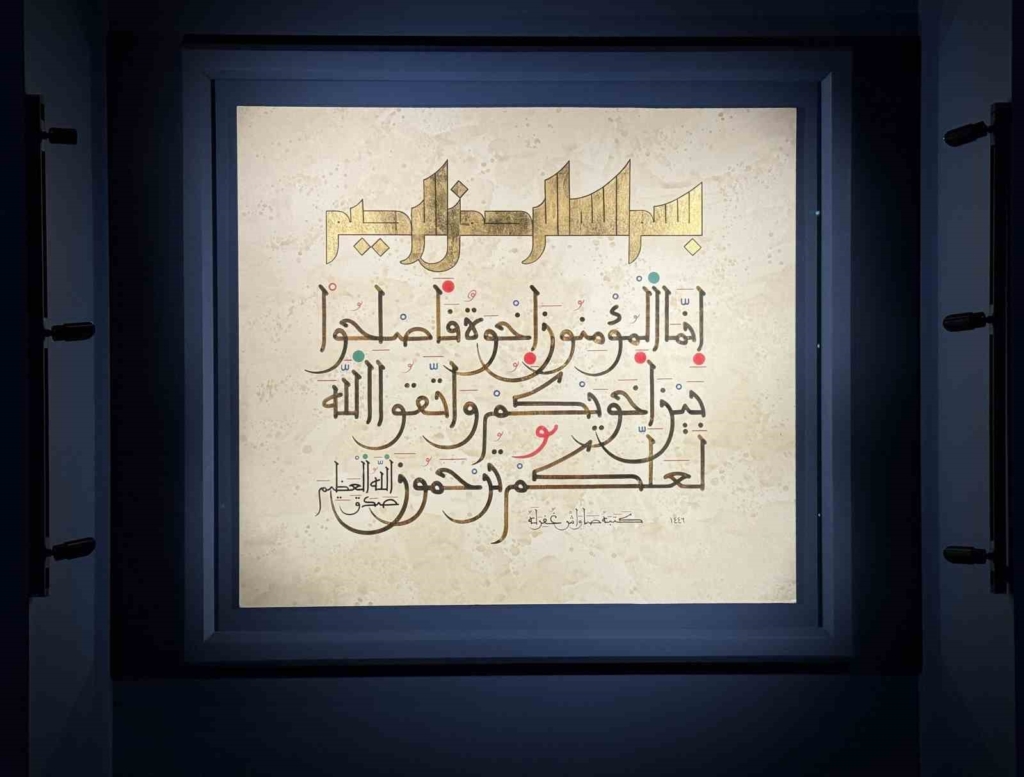 بسم الله الرحمن الرحيم
إنما المؤمنون إخوة فأصلحوا
بين أخويكم واتقوا الله
لعلكم ترحمون صدق الله العظيم
١٤٤٦ كتبه صاواش غفر له